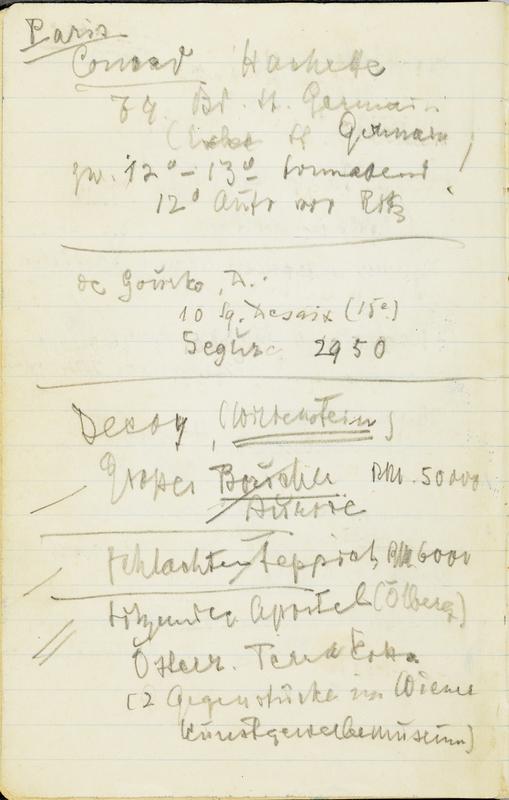 Paris
Conrad Hachette
79 Bd. St. Germain
( St Germain
zw. 12° – 13° Sonnabend !
12° Auto vor Ritz
de Gourko, D..
10 Sq. Desaix (15e)
Segur 2950
Decoy, (Wildenstein)
Grosser Boucher RM. 50000
Aurore
Schlachten Teppich RM 6000
Sitzender Apostel (Ölberg)
Österr. Terrakotta
(2 Gegenstücke im Wiener
Kunstgewerbemuseum)